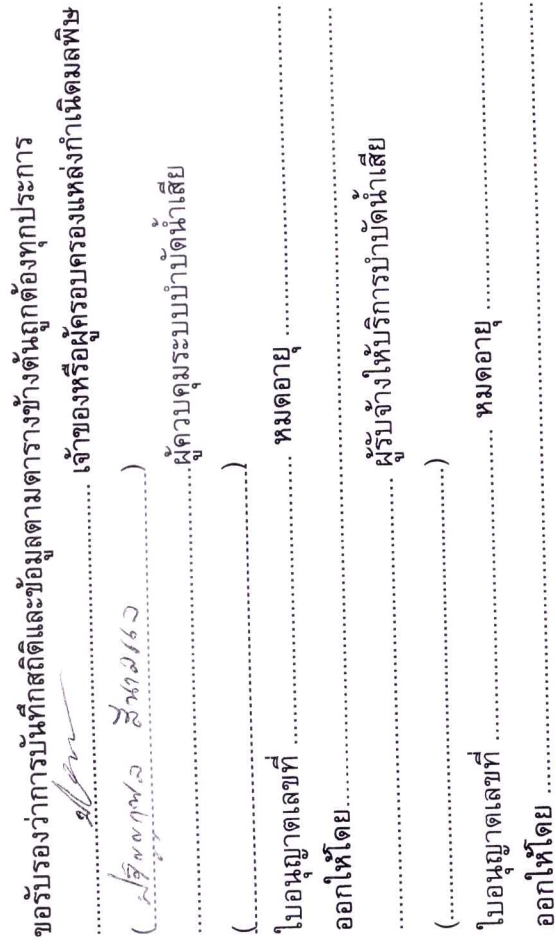 ขอรับรองว่าการบันทึกสถิติและข้อมูลตามตารางข้างต้นถูกต้องทุกประการ
.......................................................... เจ้าของหรือผู้ครอบครองแหล่งกำเนิดมลพิษ
(..........................................................)
..........................................................ผู้ควบคุมระบบบำบัดน้ำเสีย
(..........................................................)
ใบอนุญาตเลขที่ ........................................ หมดอายุ ........................................
ออกให้โดย....................................................................................
..........................................................ผู้รับจ้างให้บริการบำบัดน้ำเสีย
(..........................................................)
ใบอนุญาตเลขที่ ........................................ หมดอายุ ........................................
ออกให้โดย....................................................................................